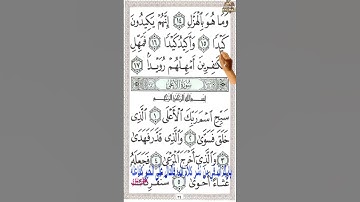 وَمَا هُوَ بِالْهَزْلِ ١٤ إِنَّهُمْ يَكِيدُونَ
كَيْدًا ١٥ وَأَكِيدُ كَيْدًا ١٦ فَمَهِّلِ
الْكَٰفِرِينَ أَمْهِلْهُمْ رُوَيْدًا ١٧
سُورَةُ الْأَعْلَى
بسم الله الرحمن الرحيم
سَبِّحِ اسْمَ رَبِّكَ الْأَعْلَى ١ الَّذِي
خَلَقَ فَسَوَّىٰ ٢ وَالَّذِي قَدَّرَ فَهَدَىٰ
٣ وَالَّذِي أَخْرَجَ الْمَرْعَىٰ ٤ فَجَعَلَهُ
غُثَاءً أَحْوَىٰ ٥ سَنُقْرِئُكَ